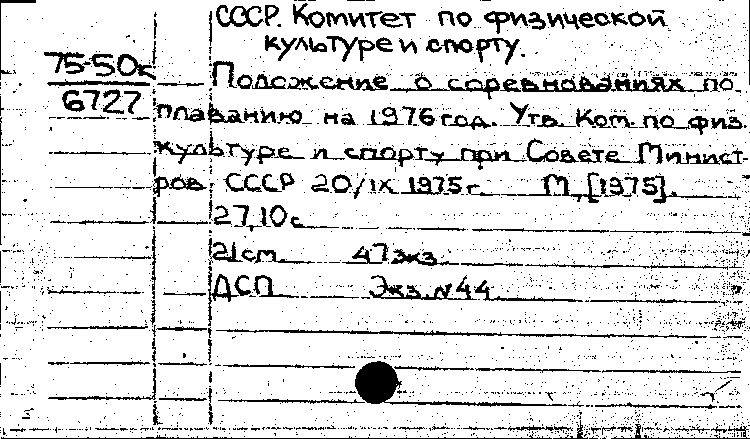 СССР. Комитет по физической
культуре и спорту.
75-50к
6727
Положение о соревнованиях по
плаванию на 1976 год. Утв. Ком. по физ.
культуре и спорту при Совете Минист-
ров СССР 20/IX 1975 г. М., [1975].
27,10 с.
21 см. 47 экз.
ДСП Экз. № 44